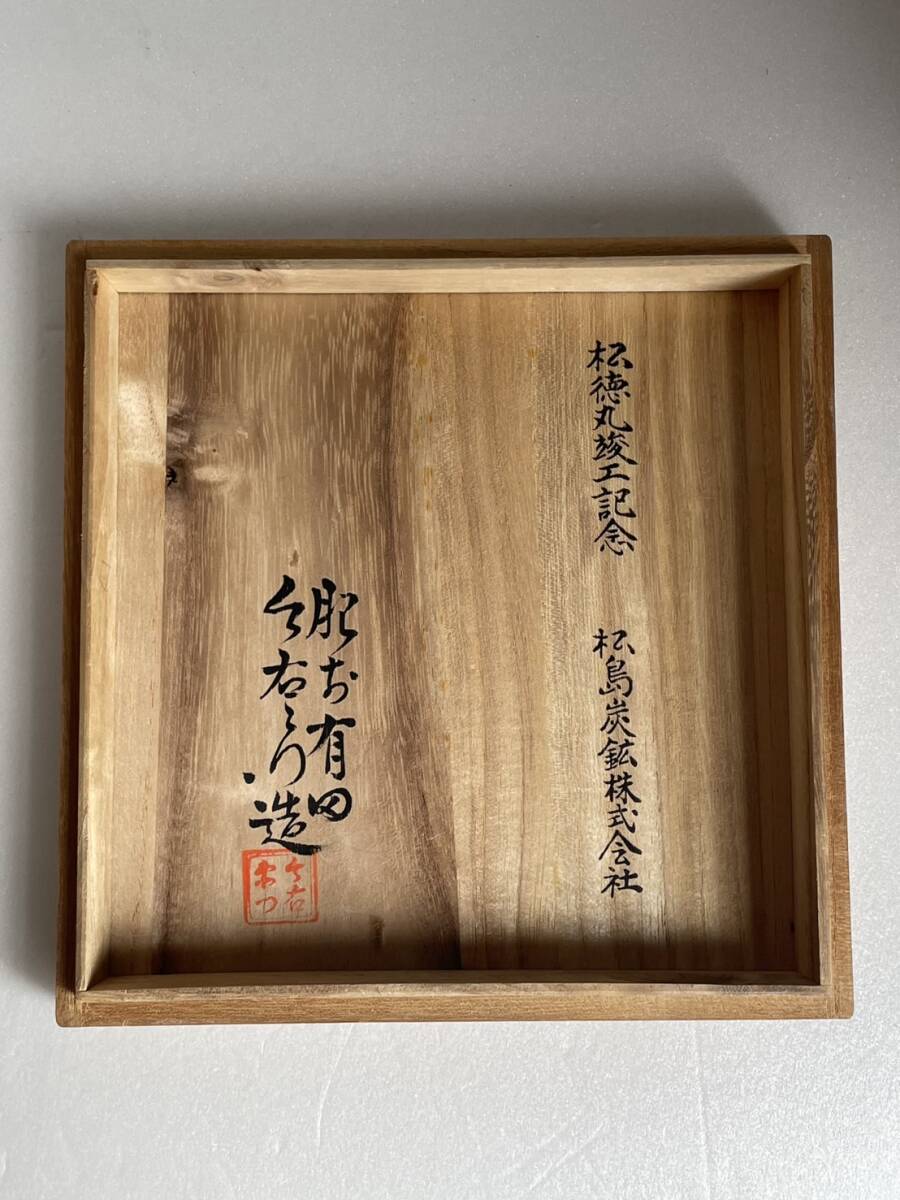 松徳丸竣工記念
松島炭鉱株式会社
肥前有田
今右衛門造
今右衛門